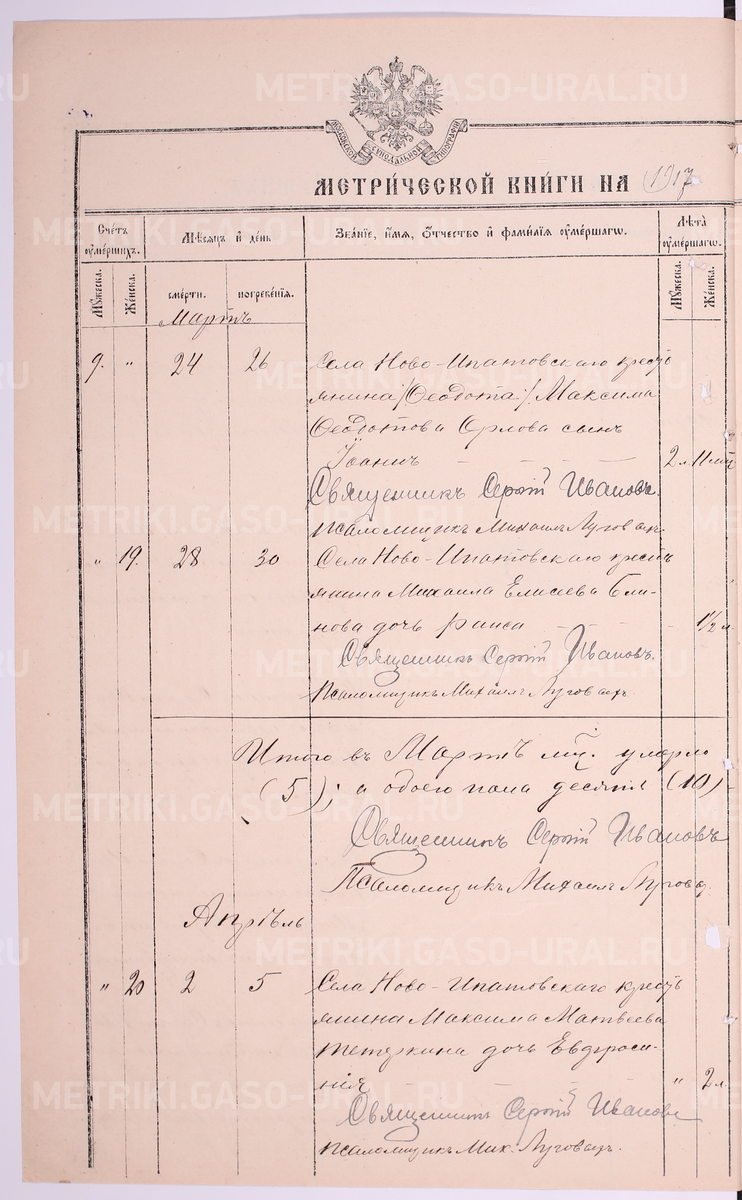 МОСКОВСКОЙ СѴНОДАЛЬНОЙ ТИПОГРАФІИ
МЕТРИ́ЧЕСКОЙ КНИ́ГИ НА 1917
Сче́тъ ᲂу҆ме́ршихъ. Мѣ́сяцъ и҆ де́нь Зва́нїе, и҆́мя, ѻ҆́тчество и҆ фами́лїѧ ᲂу҆ме́ршагѡ. Лѣ́та ᲂу҆ме́ршагѡ.
Мꙋ́жеска. Же́нска. сме́рти. погребе́нїѧ. Мꙋ́жеска. Же́нска.
Мартъ
9. " 24 26 Села Ново-Ипатовскаго кресть
янина /Ѳеодота/ Максима
Ѳеодотова Орлова сынъ
Іоаннъ 2 л. 11 мц.
Священникъ Сергій Ивановъ.
Псаломщикъ Михаилъ Луговыхъ.
" 19. 28 30 Села Ново-Ипатовскаго кресть
янина Михаила Елисѣева Бли-
нова дочь Раиса 1½ л.
Священникъ Сергій Ивановъ.
Псаломщикъ Михаилъ Луговыхъ.
Итого въ Мартѣ мц. умерло
(5); а обоего пола десять (10)
Священникъ Сергій Ивановъ
Псаломщикъ Михаилъ Лугов
Апрѣль
" 20 2 5 Села Ново-Ипатовскаго кресть
янина Максима Матвѣева
Тетюкина дочь Евфроси-
нія " 2 л.
Священникъ Сергій Ивановъ
Псаломщикъ Мих. Луговыхъ.
METRIKI.GASO-URAL.RU